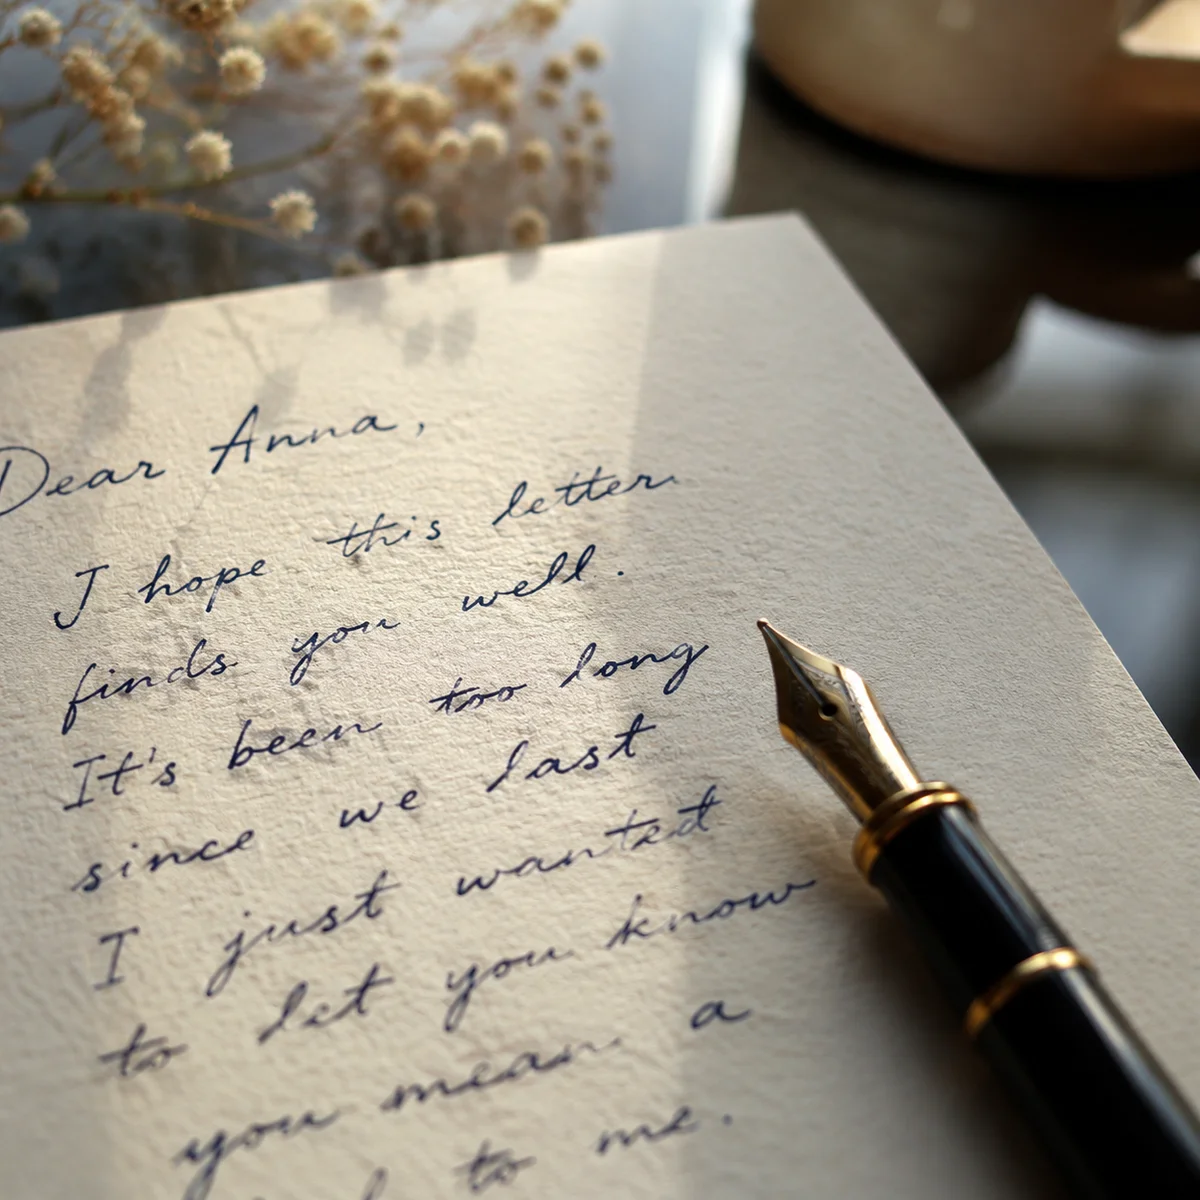 Dear Anna,
I hope this letter
finds you well.
It's been too long
since we last
I just wanted
to let you know
you mean a
to me.